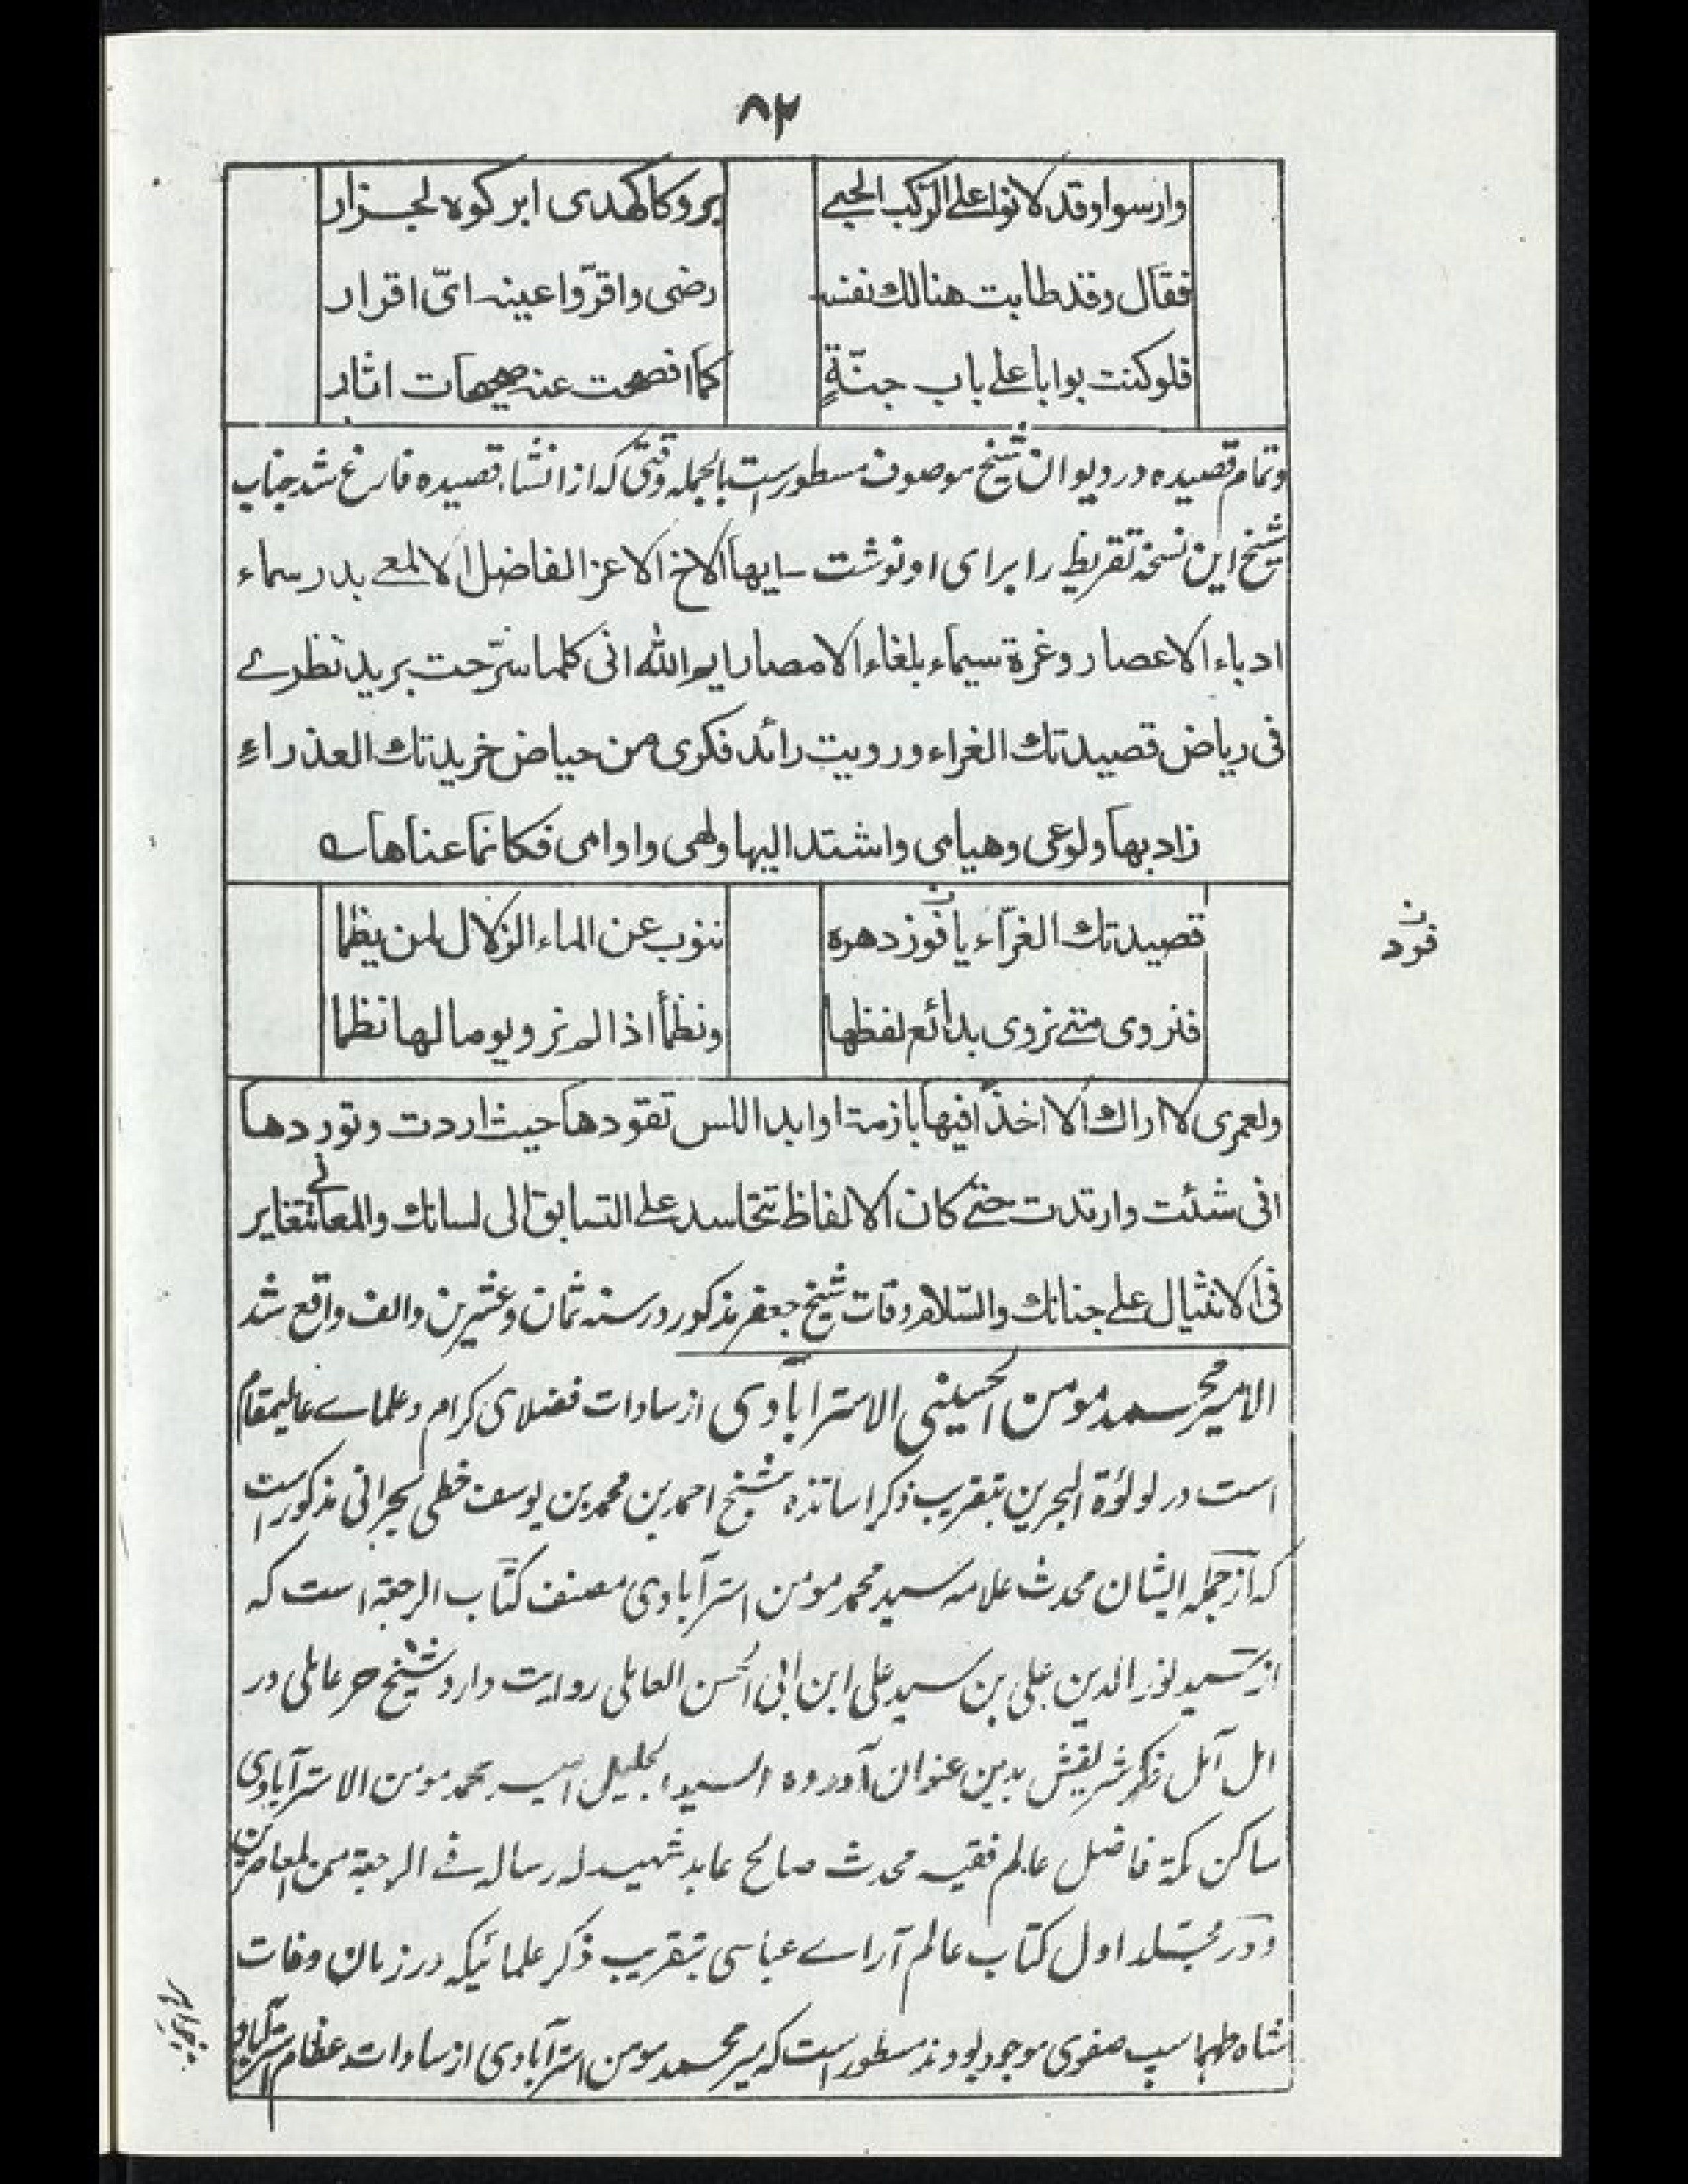 ٨٢
وارسوا وقد لاثوا على الركب الحبى
بروكا كهدى ابركوه لجزار
فقال وقد طابت هنالك نفسه
رضى واقرّوا عينه اىّ اقرار
فلو كنت بوابا على باب جنّةٍ
كما افصحت عنه صحيحات اثار
وتمام قصيده در ديوان شيخ موصوف مسطور است بالجمله وقتى كه از انشاء قصيده فارغ شد جناب
شيخ اين نسخه تقريظ را براى او نوشت ايها الاخ الاعز الفاضل الالمعى بدر سماء
ادباء الاعصار وغرة سيماء بلغاء الامصار ايم الله انى كلما سرّحت بريد نظرى
فى رياض قصيدتك الغراء ورويت رائد فكرى من حياض خريدتك العذراء
زاد بها ولوعى وهيامى واشتد اليها ولهى واوامى فكانما عناها
قصيدتك الغرّاء يا فوز دهره
تنوب عن الماء الزلال لمن يظما
فنروى متى نروى بدائع لفظها
ونظمأ اذا لم نرو يوما لها نظما
ن
فرد
ولعمرى لا اراك الا اخذاً فيها بازمة اوابد اللسن تقودها حيث اردت وتوردها
انى شئت وارتدت حتى كان الالفاظ تتحاسد على التسابق الى لسانك والمعانى تتغاير
فى الانثيال على جنانك والسّلام وفات شيخ جعفر مذكور در سنه ثمان وعشرين والف واقع شد
الامير محمد مومن الحسينى الاسترآبادى از سادات فضلاى كرام وعلماے عاليمقام
است در لولوة البحرين بتقريب ذكر اساتذه شيخ احمد بن محمد بن يوسف خطى بحرانى مذكور است
كه از جمله ايشان محدث علامه سيد محمد مومن استرآبادى مصنف كتاب الرجعة است كه
از سيد نور الدين على بن سيد على ابن ابى الحسن العاملى روايت دارد وشيخ حر عاملى در
امل آمل ذكر شريفش بدين عنوان آورده السيد الجليل امير محمد مومن الاسترآبادى
ساكن مكة فاضل عالم فقيه محدث صالح عابد شهيد له رساله فى الرجعة من المعاصرين
ودر مجلد اول كتاب عالم آراے عباسى بتقريب ذكر علمائيكه در زمان وفات
شاه طهماسپ صفوى موجود بودند مسطور است كه مير محمد مومن استرآبادى از سادات عظام استرآباد